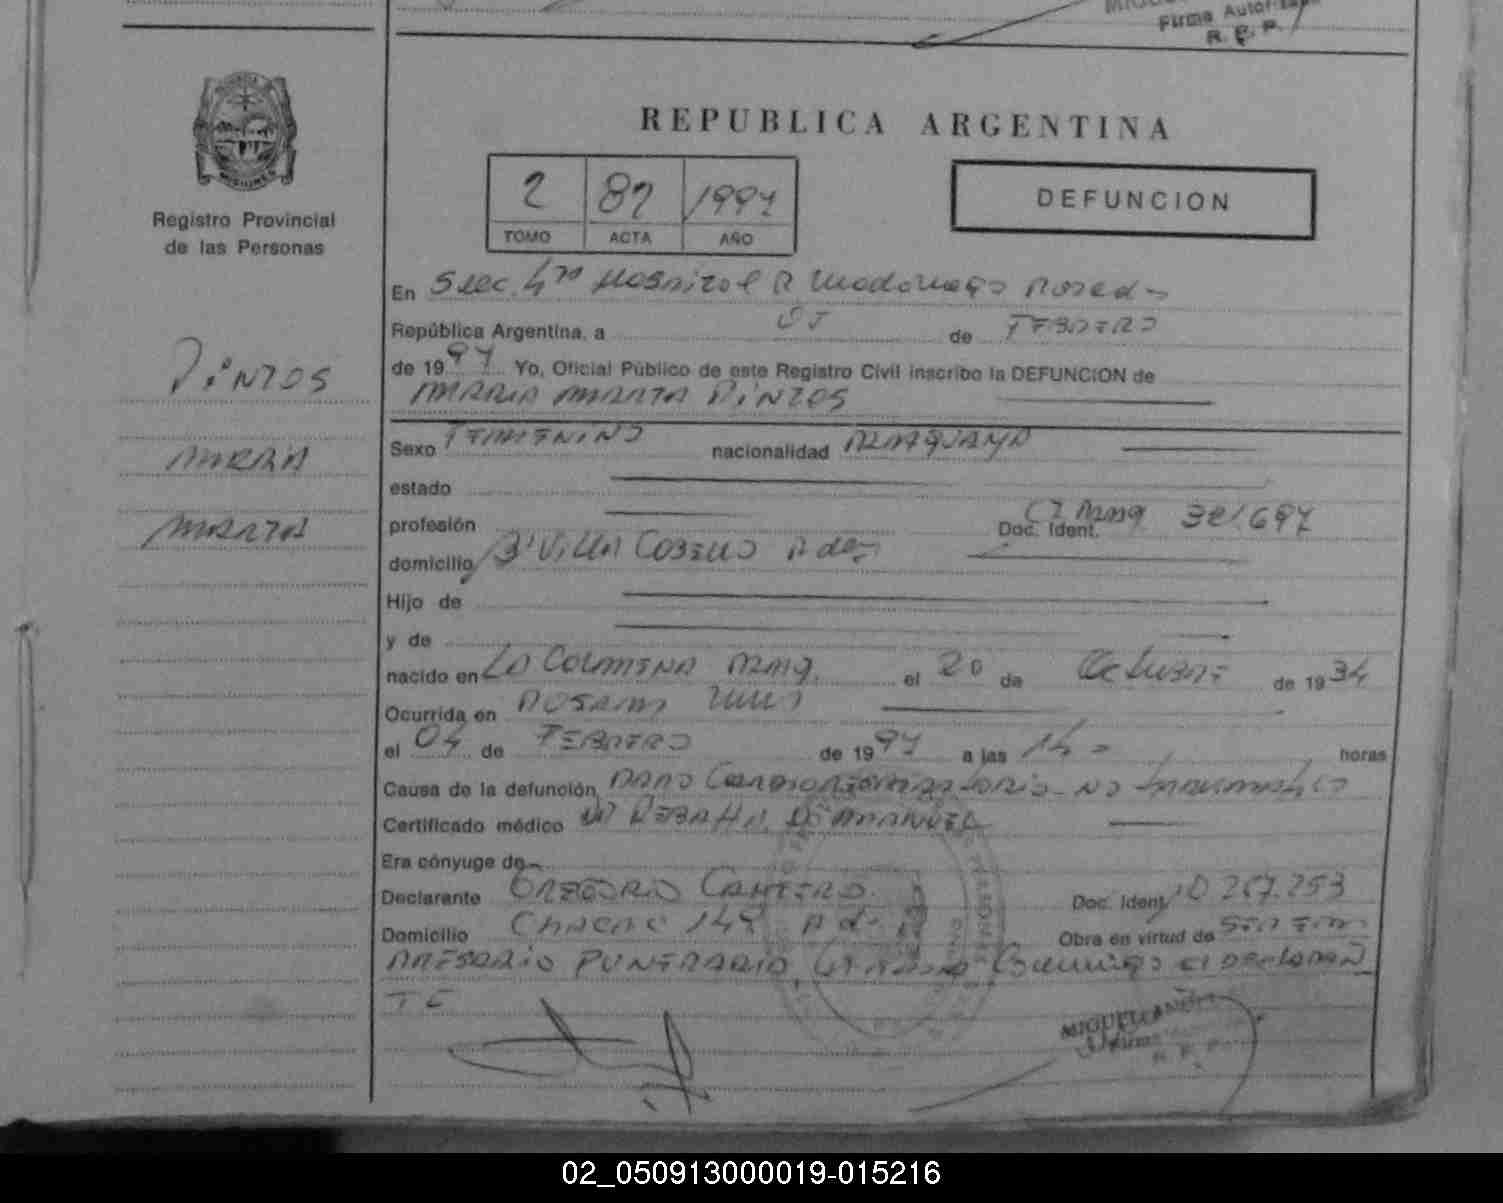 Firma Autoriz
R. E. P.
REPUBLICA ARGENTINA
2 87 1997
TOMO ACTA AÑO
DEFUNCION
MISIONES
Registro Provincial
de las Personas
En Secc. 4ta Hospital R Madariaga Posadas
República Argentina, a 05 de FEBRERO
de 1997 Yo, Oficial Público de este Registro Civil inscribo la DEFUNCION de
MARIA MARTA PINTOS
PINTOS
MARIA
MARTA
Sexo FEMENINO nacionalidad PARAGUAYA
estado
profesión Doc. Ident. CI PARAG
domicilio Bº VILLA
Hijo de
y de
nacido en LA COLMENA PARAG. el 20 de Octubre de 1934
Ocurrida en POSADAS
el 04 de FEBRERO de 1997 a las 14 - horas
Causa de la defunción PARO CARDIORESPIRATORIO - NO TRAUMATICO
Certificado médico
Era cónyuge de
Declarante GREGORIO CANTERO Doc. Ident. 10 257.253
Domicilio CHACRA 148 Obra en virtud de SER EM
PRESARIO FUNERARIO el DECLARAN
TE
MIGUEL
02_050913000019-015216